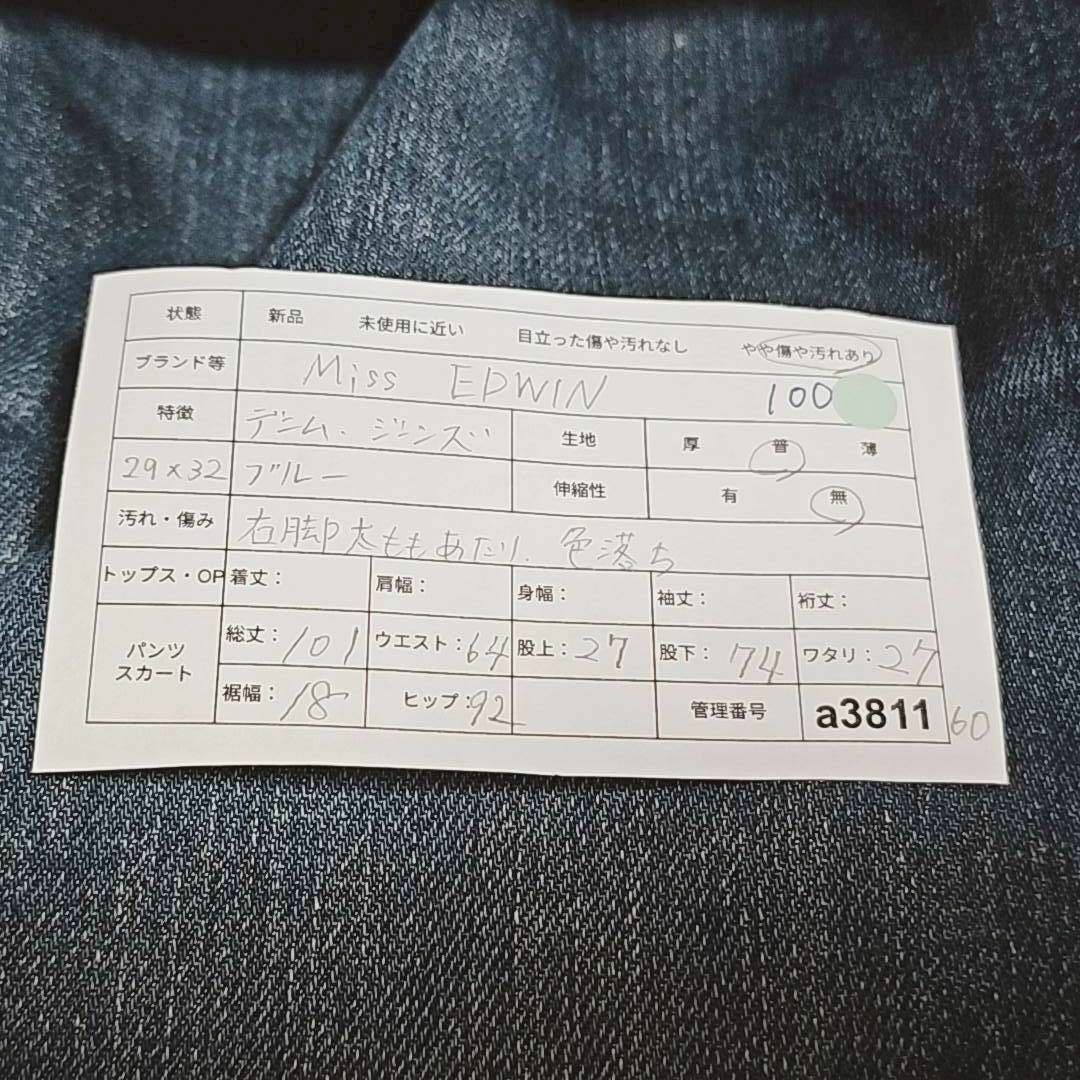 状態 新品 未使用に近い 目立った傷や汚れなし やや傷や汚れあり
ブランド等 Miss EDWIN 100
特徴 デニム、ジーンズ 生地 厚 普 薄
29×32 ブルー 伸縮性 有 無
汚れ・傷み 右脚太ももあたり、色落ち
トップス・OP 着丈: 肩幅: 身幅: 袖丈: 裄丈:
パンツ スカート 総丈:101 ウエスト:64 股上:27 股下:74 ワタリ:27
裾幅:18 ヒップ:92 管理番号 a3811 60